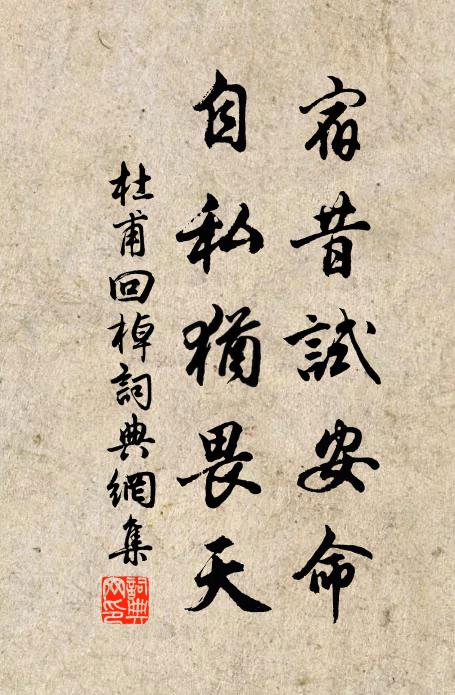 宿昔試安命
自私猶畏天
杜甫回棹詞典網集
詞典
网印